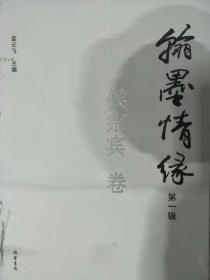 翰墨情缘
第一辑
侯宗宾 卷
孟云飞 主编
线装书局